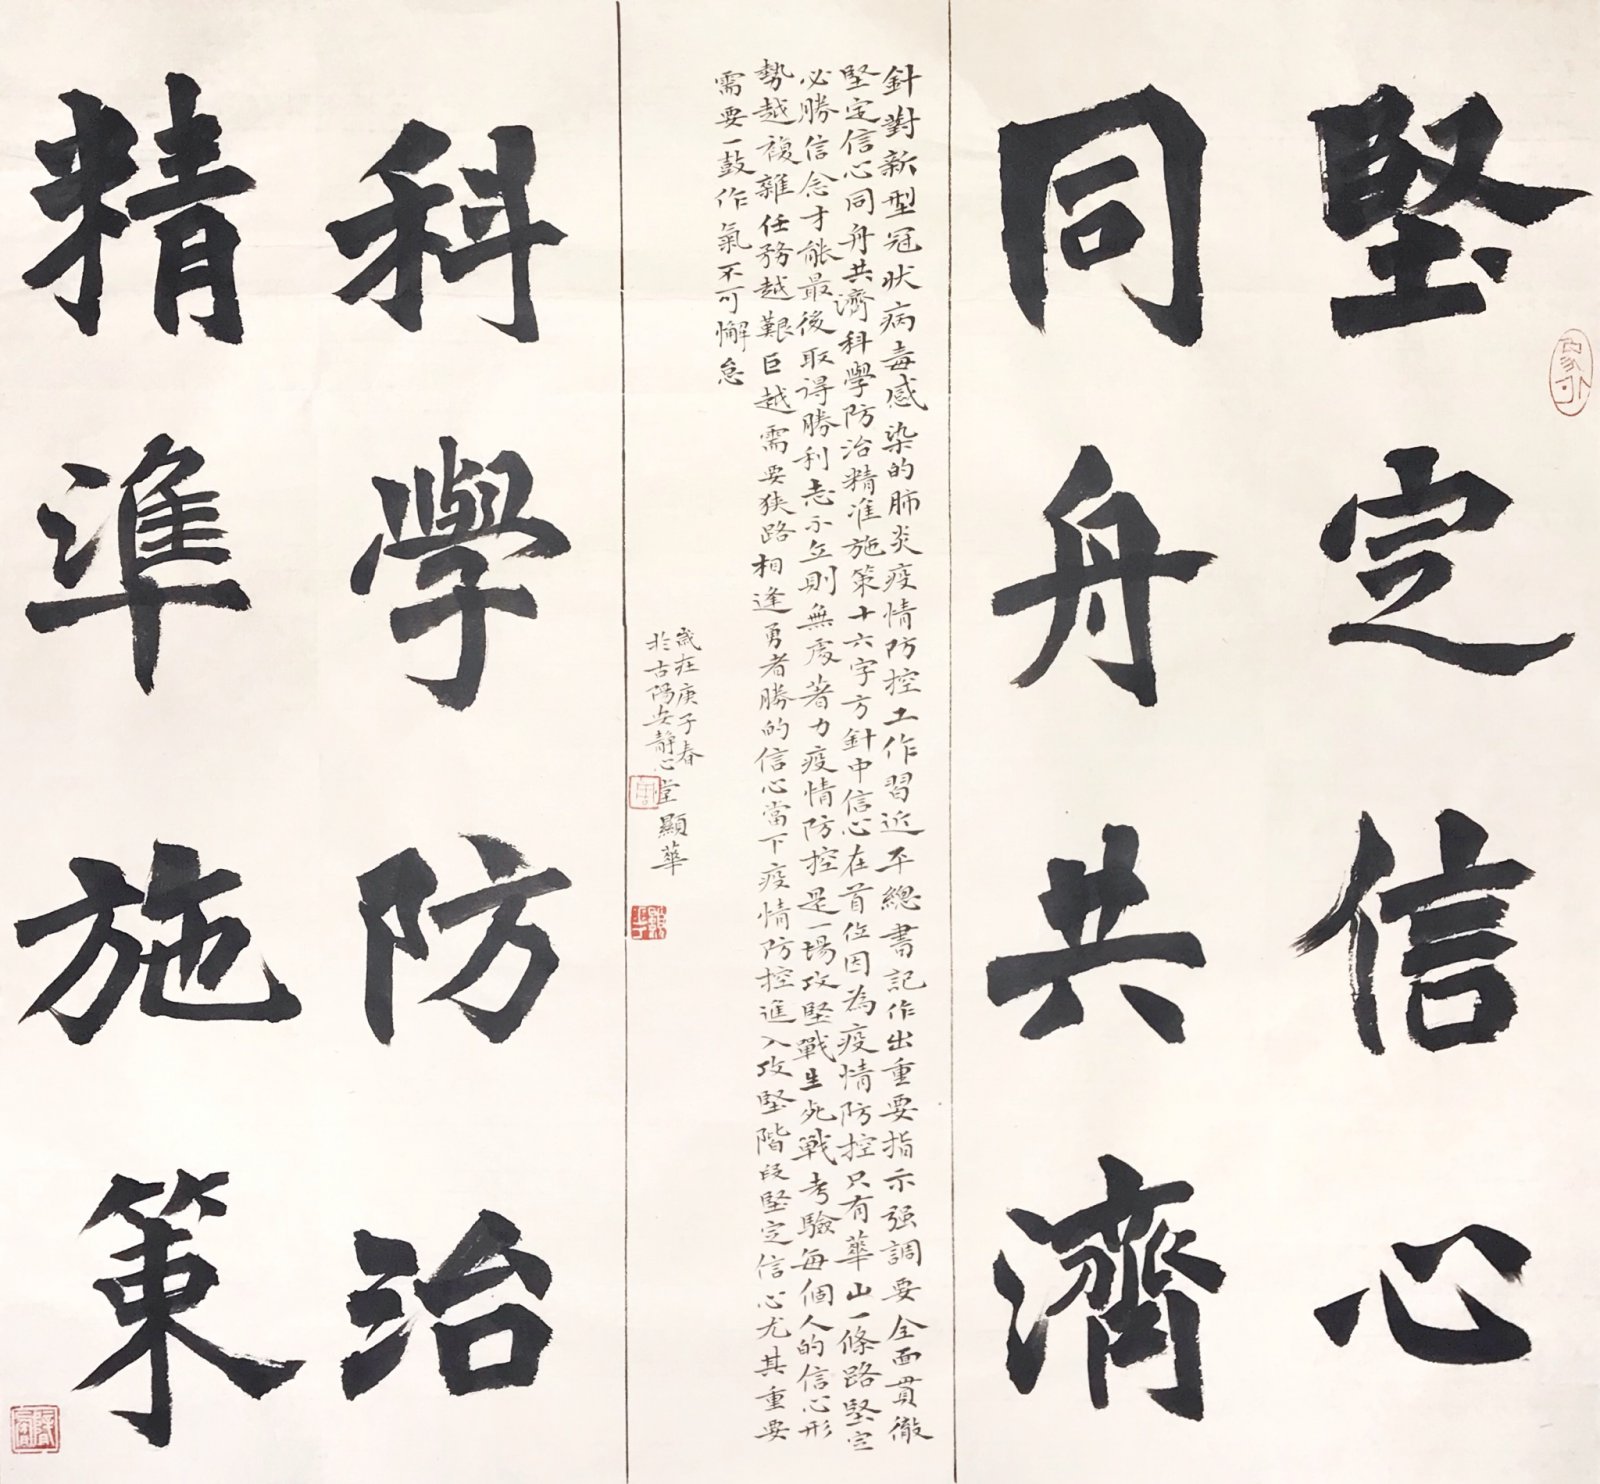 堅定信心
同舟共濟
針對新型冠狀病毒感染的肺炎疫情防控工作習近平總書記作出重要指示强調要全面貫徹
堅定信心同舟共濟科學防治精准施策十六字方針中信心在首位因為疫情防控只有華山一條路堅定
必勝信念才能最後取得勝利志不立則無處著力疫情防控是一場攻堅戰生死戰考驗每個人的信心形
勢越複雜任務越艱巨越需要狹路相逢勇者勝的信心當下疫情防控進入攻堅階段堅定信心尤其重要
需要一鼓作氣不可懈怠
歲在庚子春
於古陽安靜心堂顯華
科學防治
精準施策